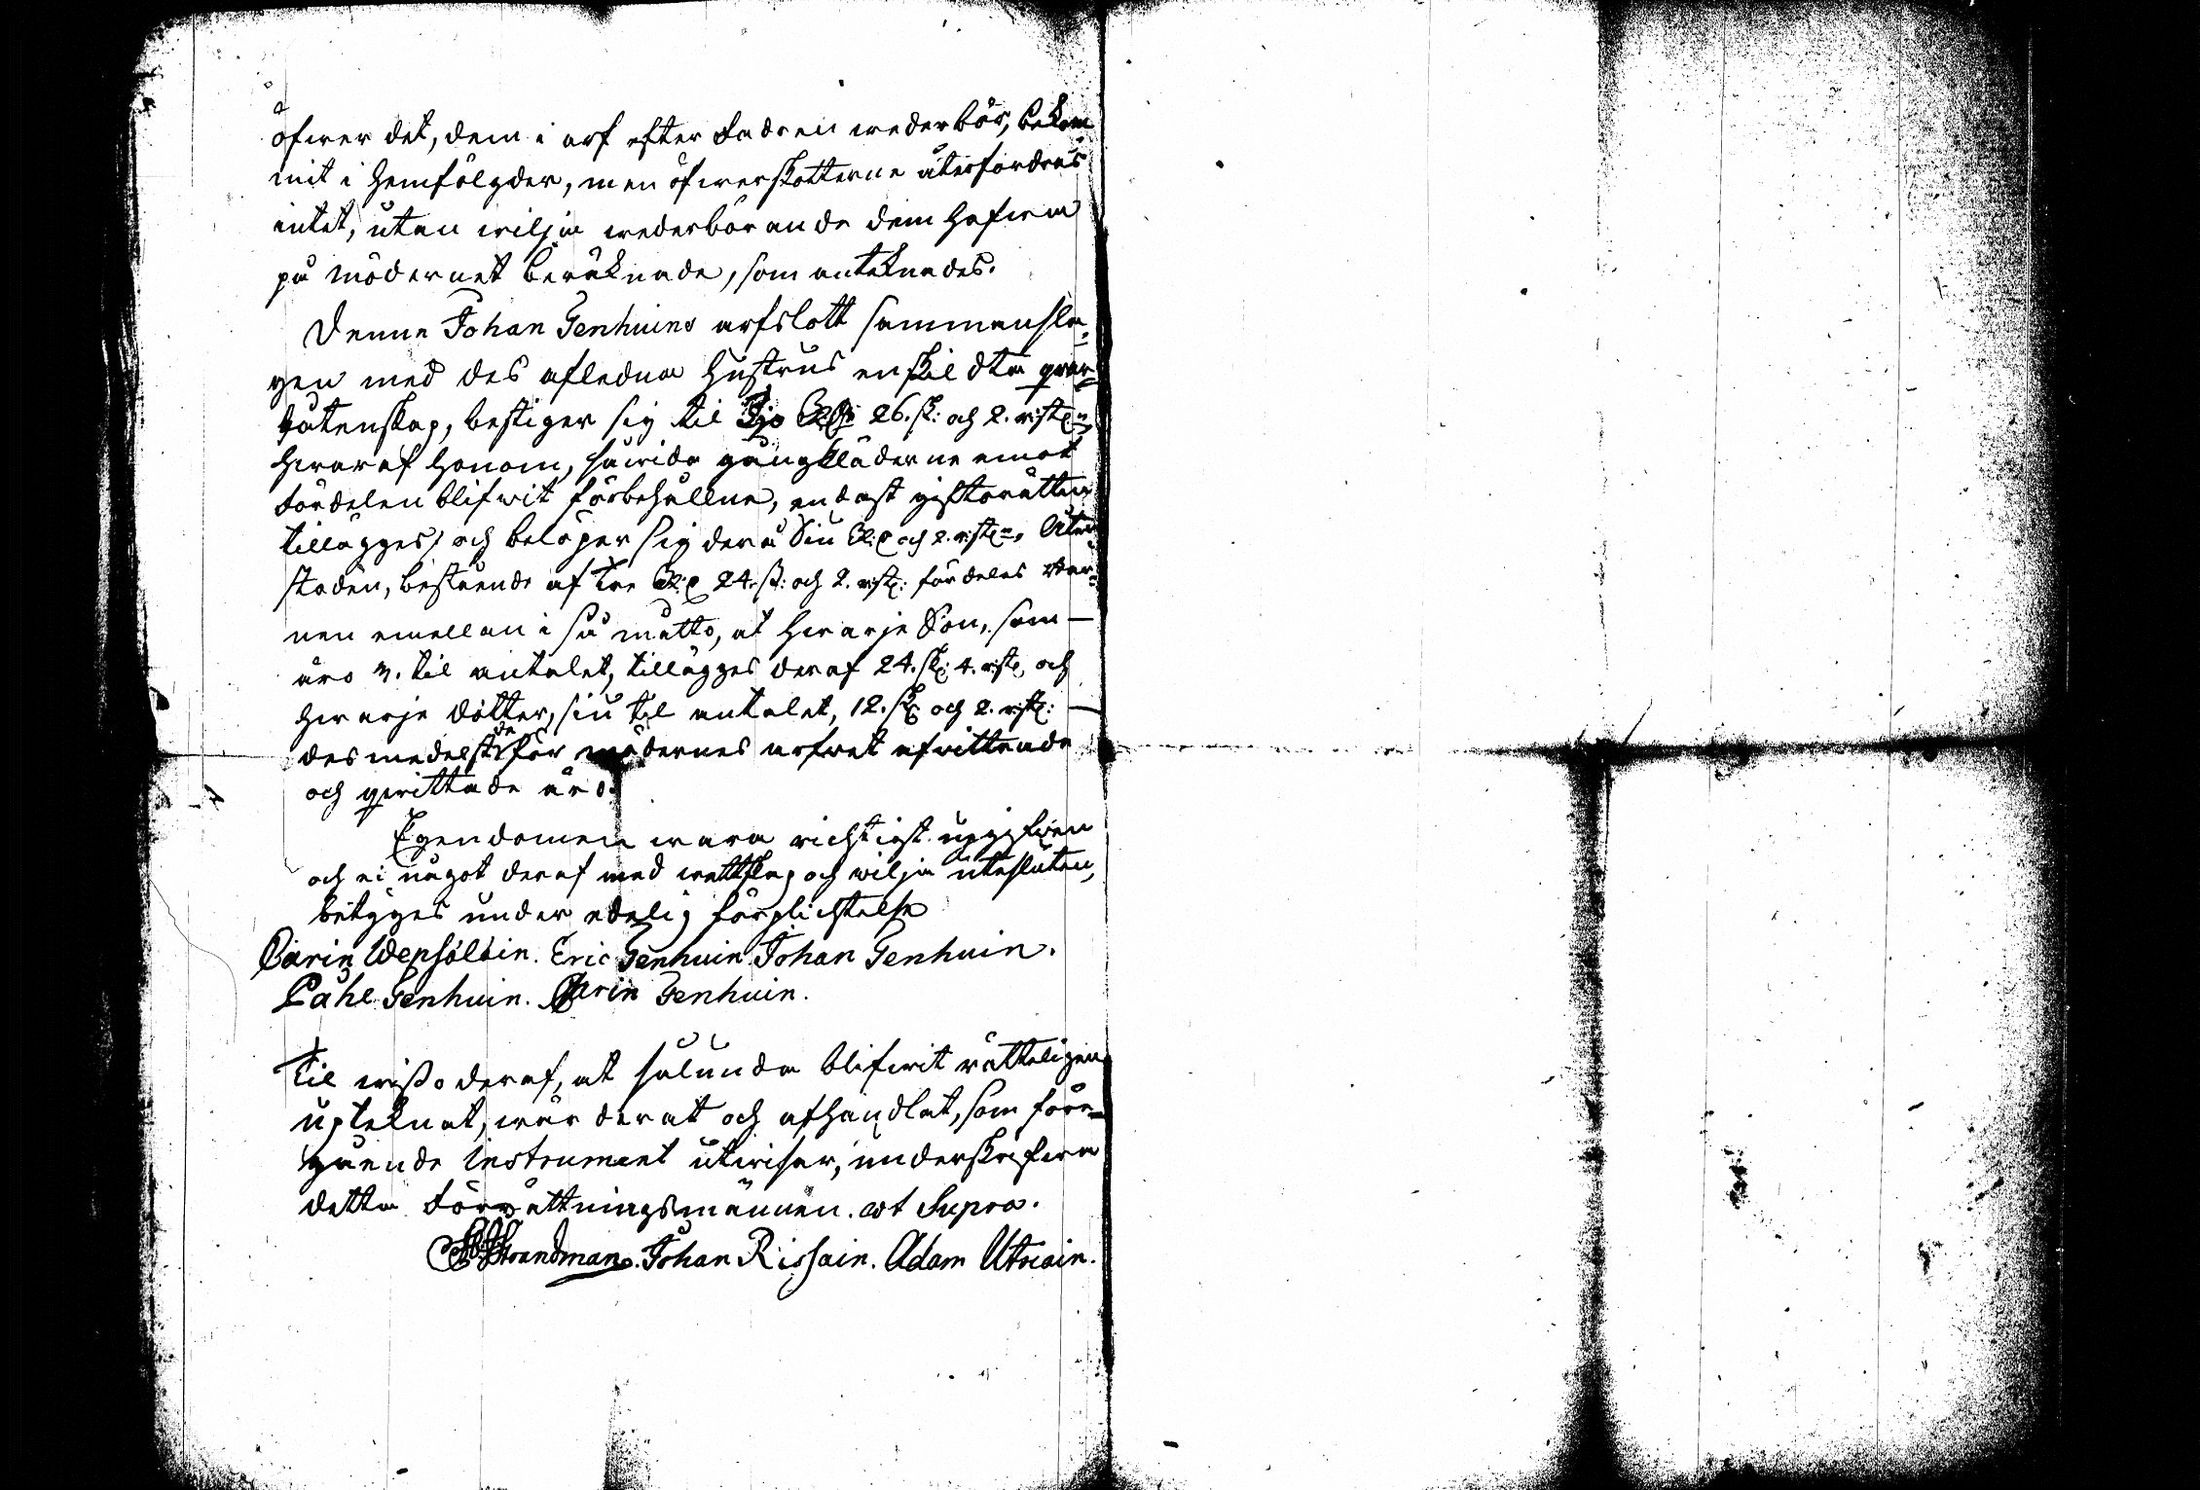 öfwer det, dem i arf efter Fadren wederbör, bekom-
mit i hemfölgder, men öfwerskotterne återfordras
intet, utan wilja wederbörande dem hafwa
på mödernet beräknade, som anteknades.
Denne Johan Genhuins arfslott sammansla-
gen med des afledna hustrus enskildta qvar-
låtenskap, bestiger sig til Tjo 26. sk: och 2. rst:
hwaraf honom, sawida gångkläderne emot
fördelen blifwit förbehållne, endast giftorätten
tillägges, och belöper sig derå Siu R: och 2. rst:, Åter-
stoden, bestående af Tre R: 24. sk: och 2. rst: fördeles Bar-
nen emellan i så matto, at hwarje Son, som
äro 3. til antalet, tillägges deraf 24. sk: 4. rst: och
hwarje dotter, siu til antalet, 12. sk: och 2. rst:
desmedelst de för mödernes arfwet afwittrade
och qwittade äro.
Egendomen wara richtigt uppgifwen
och ei något deraf med wettskap och wilja utesluten,
betyges under edelig förplichtelse
Carin Wepsäläin. Eric Genhuin. Johan Genhuin.
Påhl Genhuin. Carin Genhuin.
Til wisso deraf, at sålunda blifwit rätteligen
upteknat, wärderat och afhandlat, som före-
gående Instrument utwisar, underskrifwa
detta Förrättningsmännen. ut Supra.
Strandman. Johan Rissain. Adam Utriain.